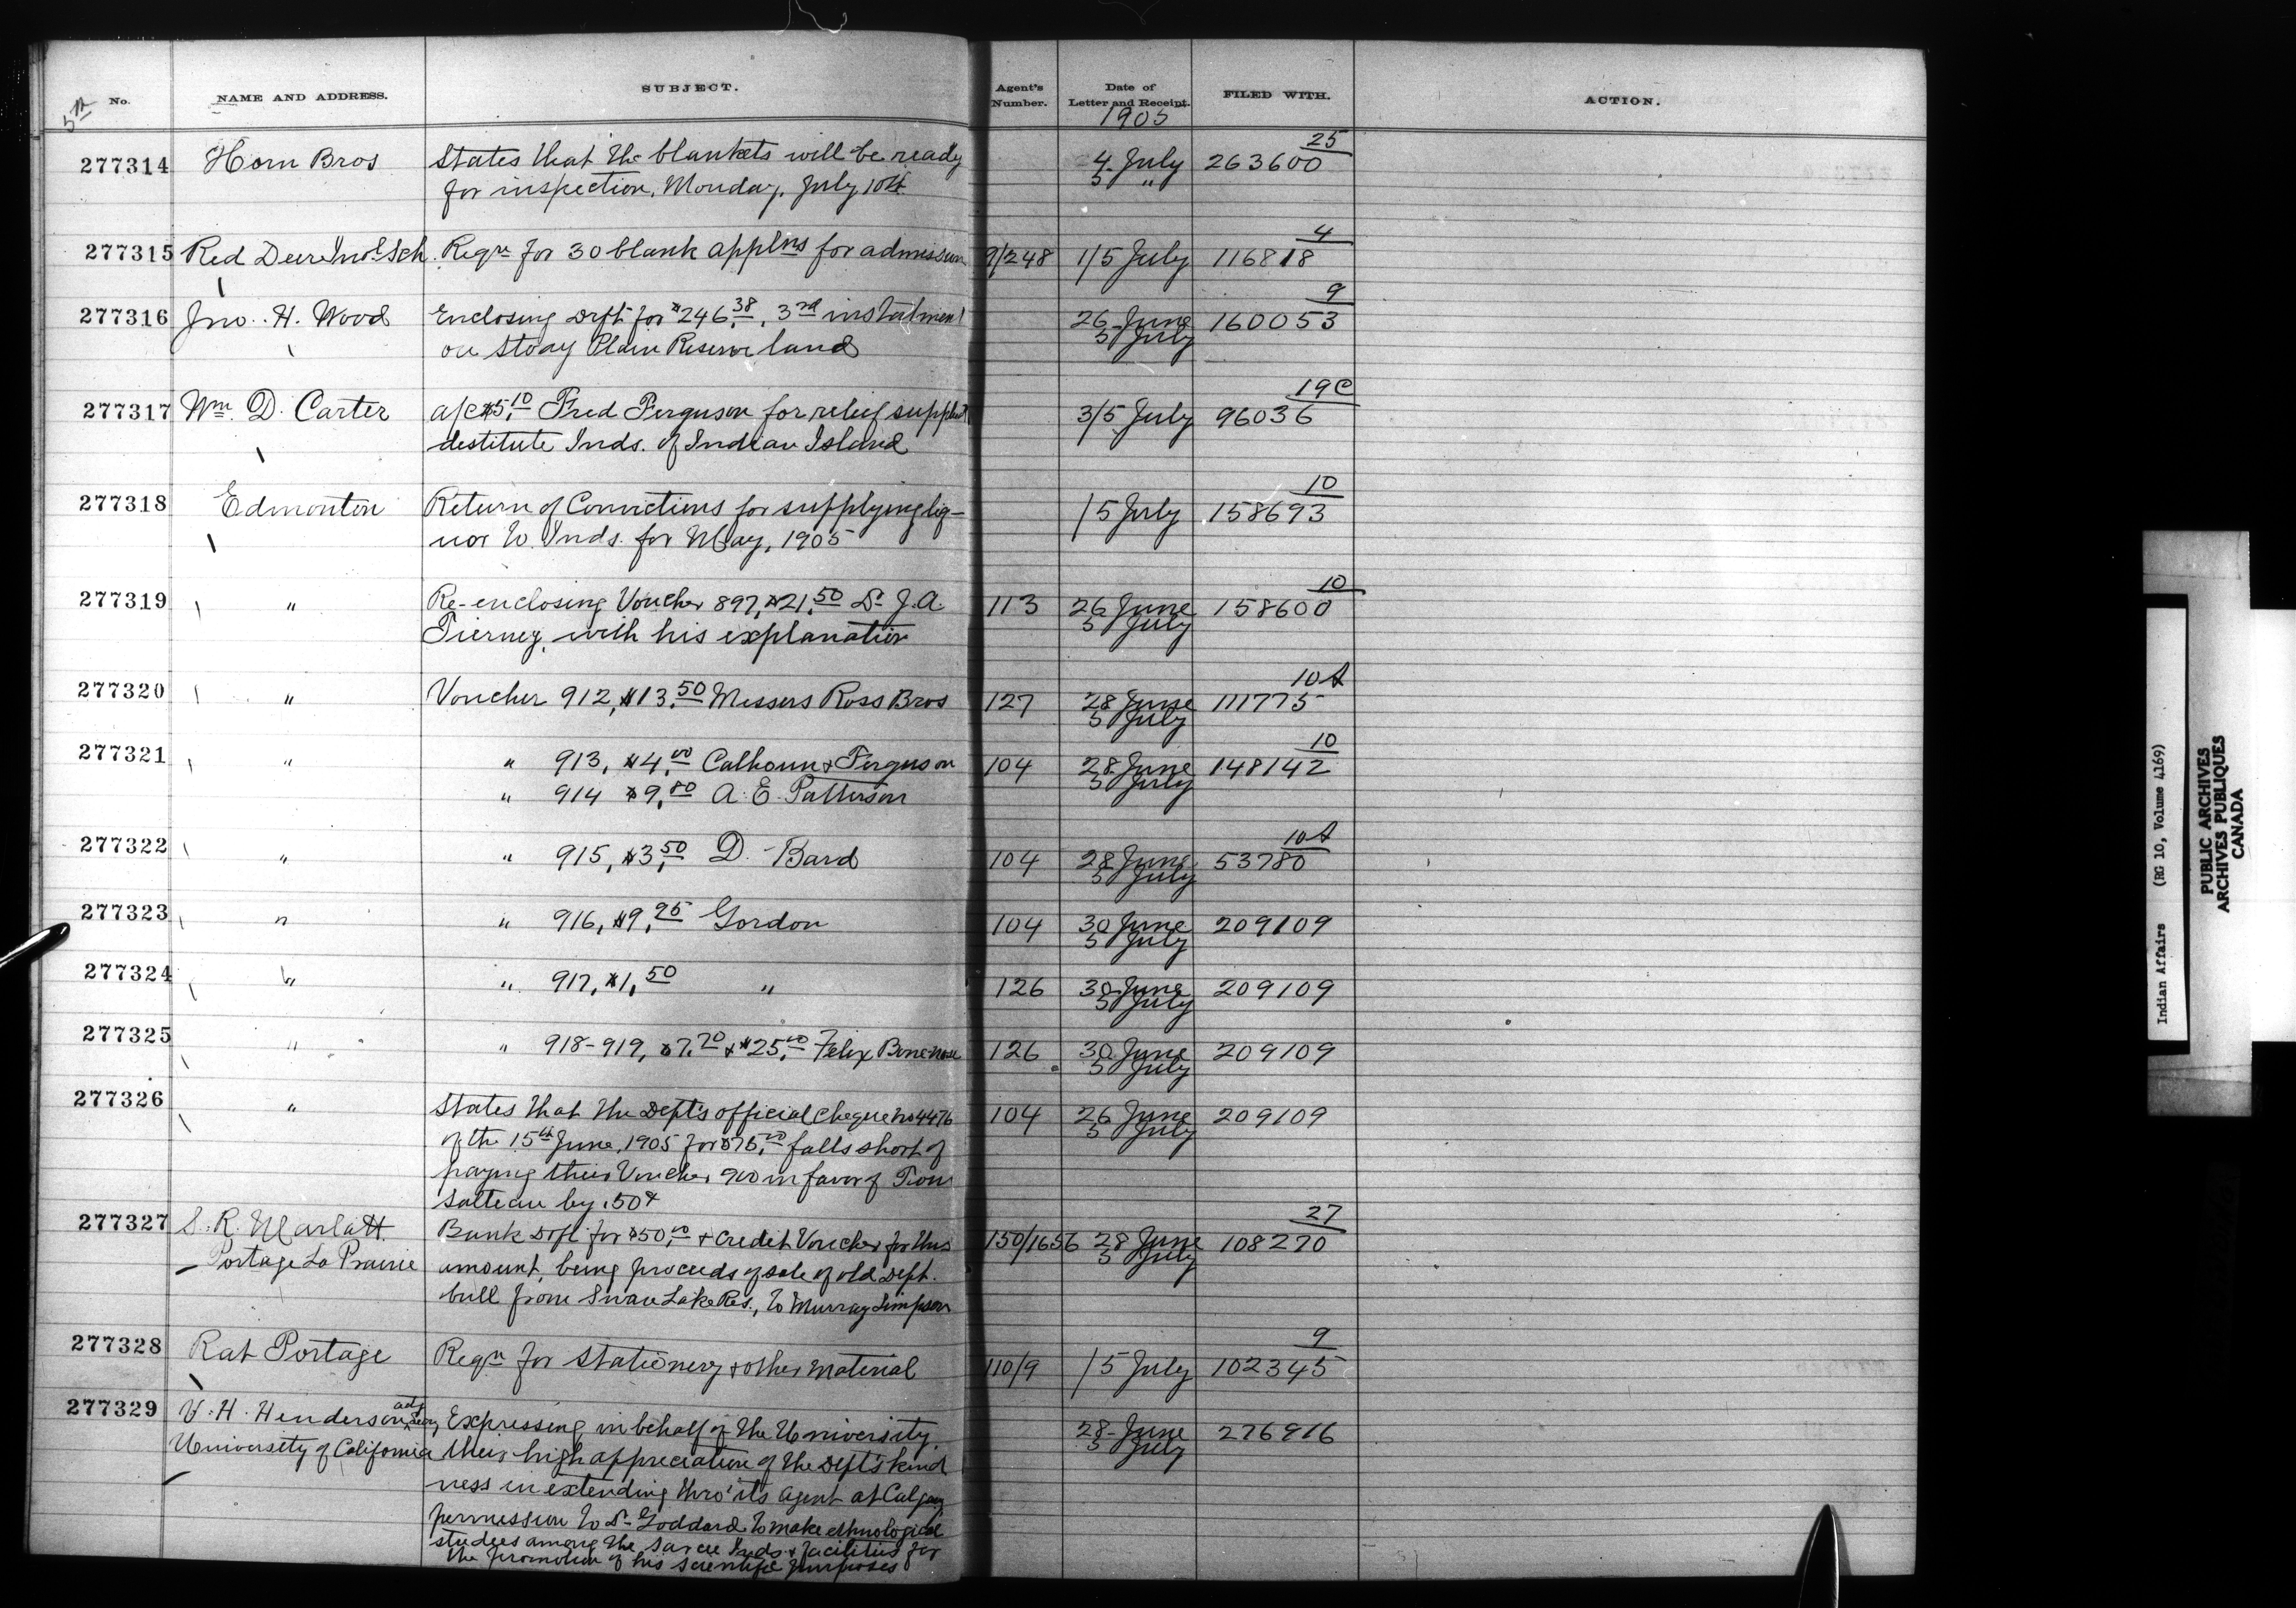 5th No. NAME AND ADDRESS. SUBJECT. Agent's Number. Date of Letter and Receipt. FILED WITH. ACTION.
1905
25
277314 Horn Bros States that the blankets will be ready 4 July 263600
for inspection, Monday, July 10th 5 "
4
277315 Red Deer Ind Sch. Reqn for 30 blank applns for admission 9/248 1/5 July 116818
9
277316 Jno. H. Wood Enclosing Dft for $246.38, 3rd instalment 26 June 160053
on Stony Plain Reserve land 5 July
19C
277317 Wm. D. Carter a/c $5.10 Fred Ferguson for relief supplied 3/5 July 96036
destitute Inds. of Indian Island
10
277318 Edmonton Return of Convictions for supplying liq- /5 July 158693
uor to Inds. for May, 1905
10
277319 " Re-enclosing Voucher 897, $21.50 Dr J.A. 113 26 June 158600
Tierney, with his explanation 5 July
10A
277320 " Voucher 912, $13.50 Messrs Ross Bros 127 28 June 111775
5 July
10
277321 " " 913, $4.00 Calhoun & Ferguson 104 28 June 148142
" 914 $9.80 A. E. Patterson 5 July
10A
277322 " " 915, $3.50 D. Bard 104 28 June 53780
5 July
277323 " " 916, $9.95 Gordon 104 30 June 209109
5 July
277324 " " 917, $1.50 " 126 30 June 209109
5 July
277325 " " 918-919, $7.70 & $25.00 Felix 126 30 June 209109
5 July
277326 " States that the Dept's official cheque no 4476 104 26 June 209109
of the 15th June, 1905 for $75.00 falls short of 5 July
paying their Voucher 900 in favor of
Salteau by .50¢
27
277327 S. R. Marlatt Bank Dft for $50.00 & Credit Voucher for this 150/1656 28 June 108270
Portage La Prairie amount, being proceeds of sale of old Dept. 5 July
bull from Swan Lake Res., to Murray Simpson
9
277328 Rat Portage Reqn for Stationery & other material 110/9 /5 July 102345
277329 V. H. Henderson, actg Secy, Expressing in behalf of the University 28 June 276916
University of California their high appreciation of the Dept's kind 5 July
ness in extending thro' its agent at Calgary
permission to Dr Goddard to make ethnological
studies among the Sarcee Inds. & facilities for
the promotion of his scientific purposes
Indian Affairs (RG 10, Volume 4169)
PUBLIC ARCHIVES
ARCHIVES PUBLIQUES
CANADA